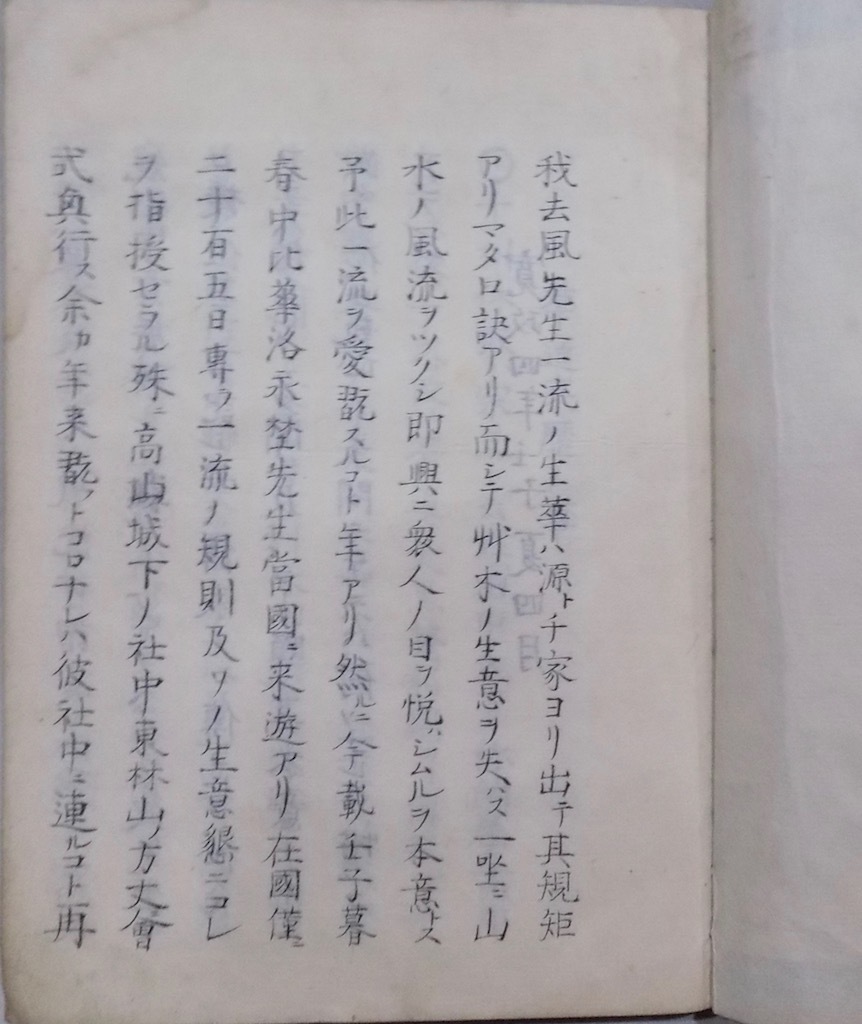 我去風先生一流ノ生華ハ源ト千家ヨリ出テ其規矩
アリマタロ訣アリ而シテ艸木ノ生意ヲ失ハス一坐ニ山
水ノ風流ヲツクシ即興ニ衆人ノ目ヲ悦ハシムルヲ本意トス
予此一流ヲ愛翫スルコト年アリ然ルニ今載壬子暮
春中比華洛永埜先生當國ニ来遊アリ在國僅ニ
二十有五日専ラ一流ノ規則及ソノ生意懇ニコレ
ヲ指授セラル殊ニ高山城下ノ社中東林山ノ方丈會
式興行ス余カ年来翫フトコロナレハ彼社中ニ連ルコト再